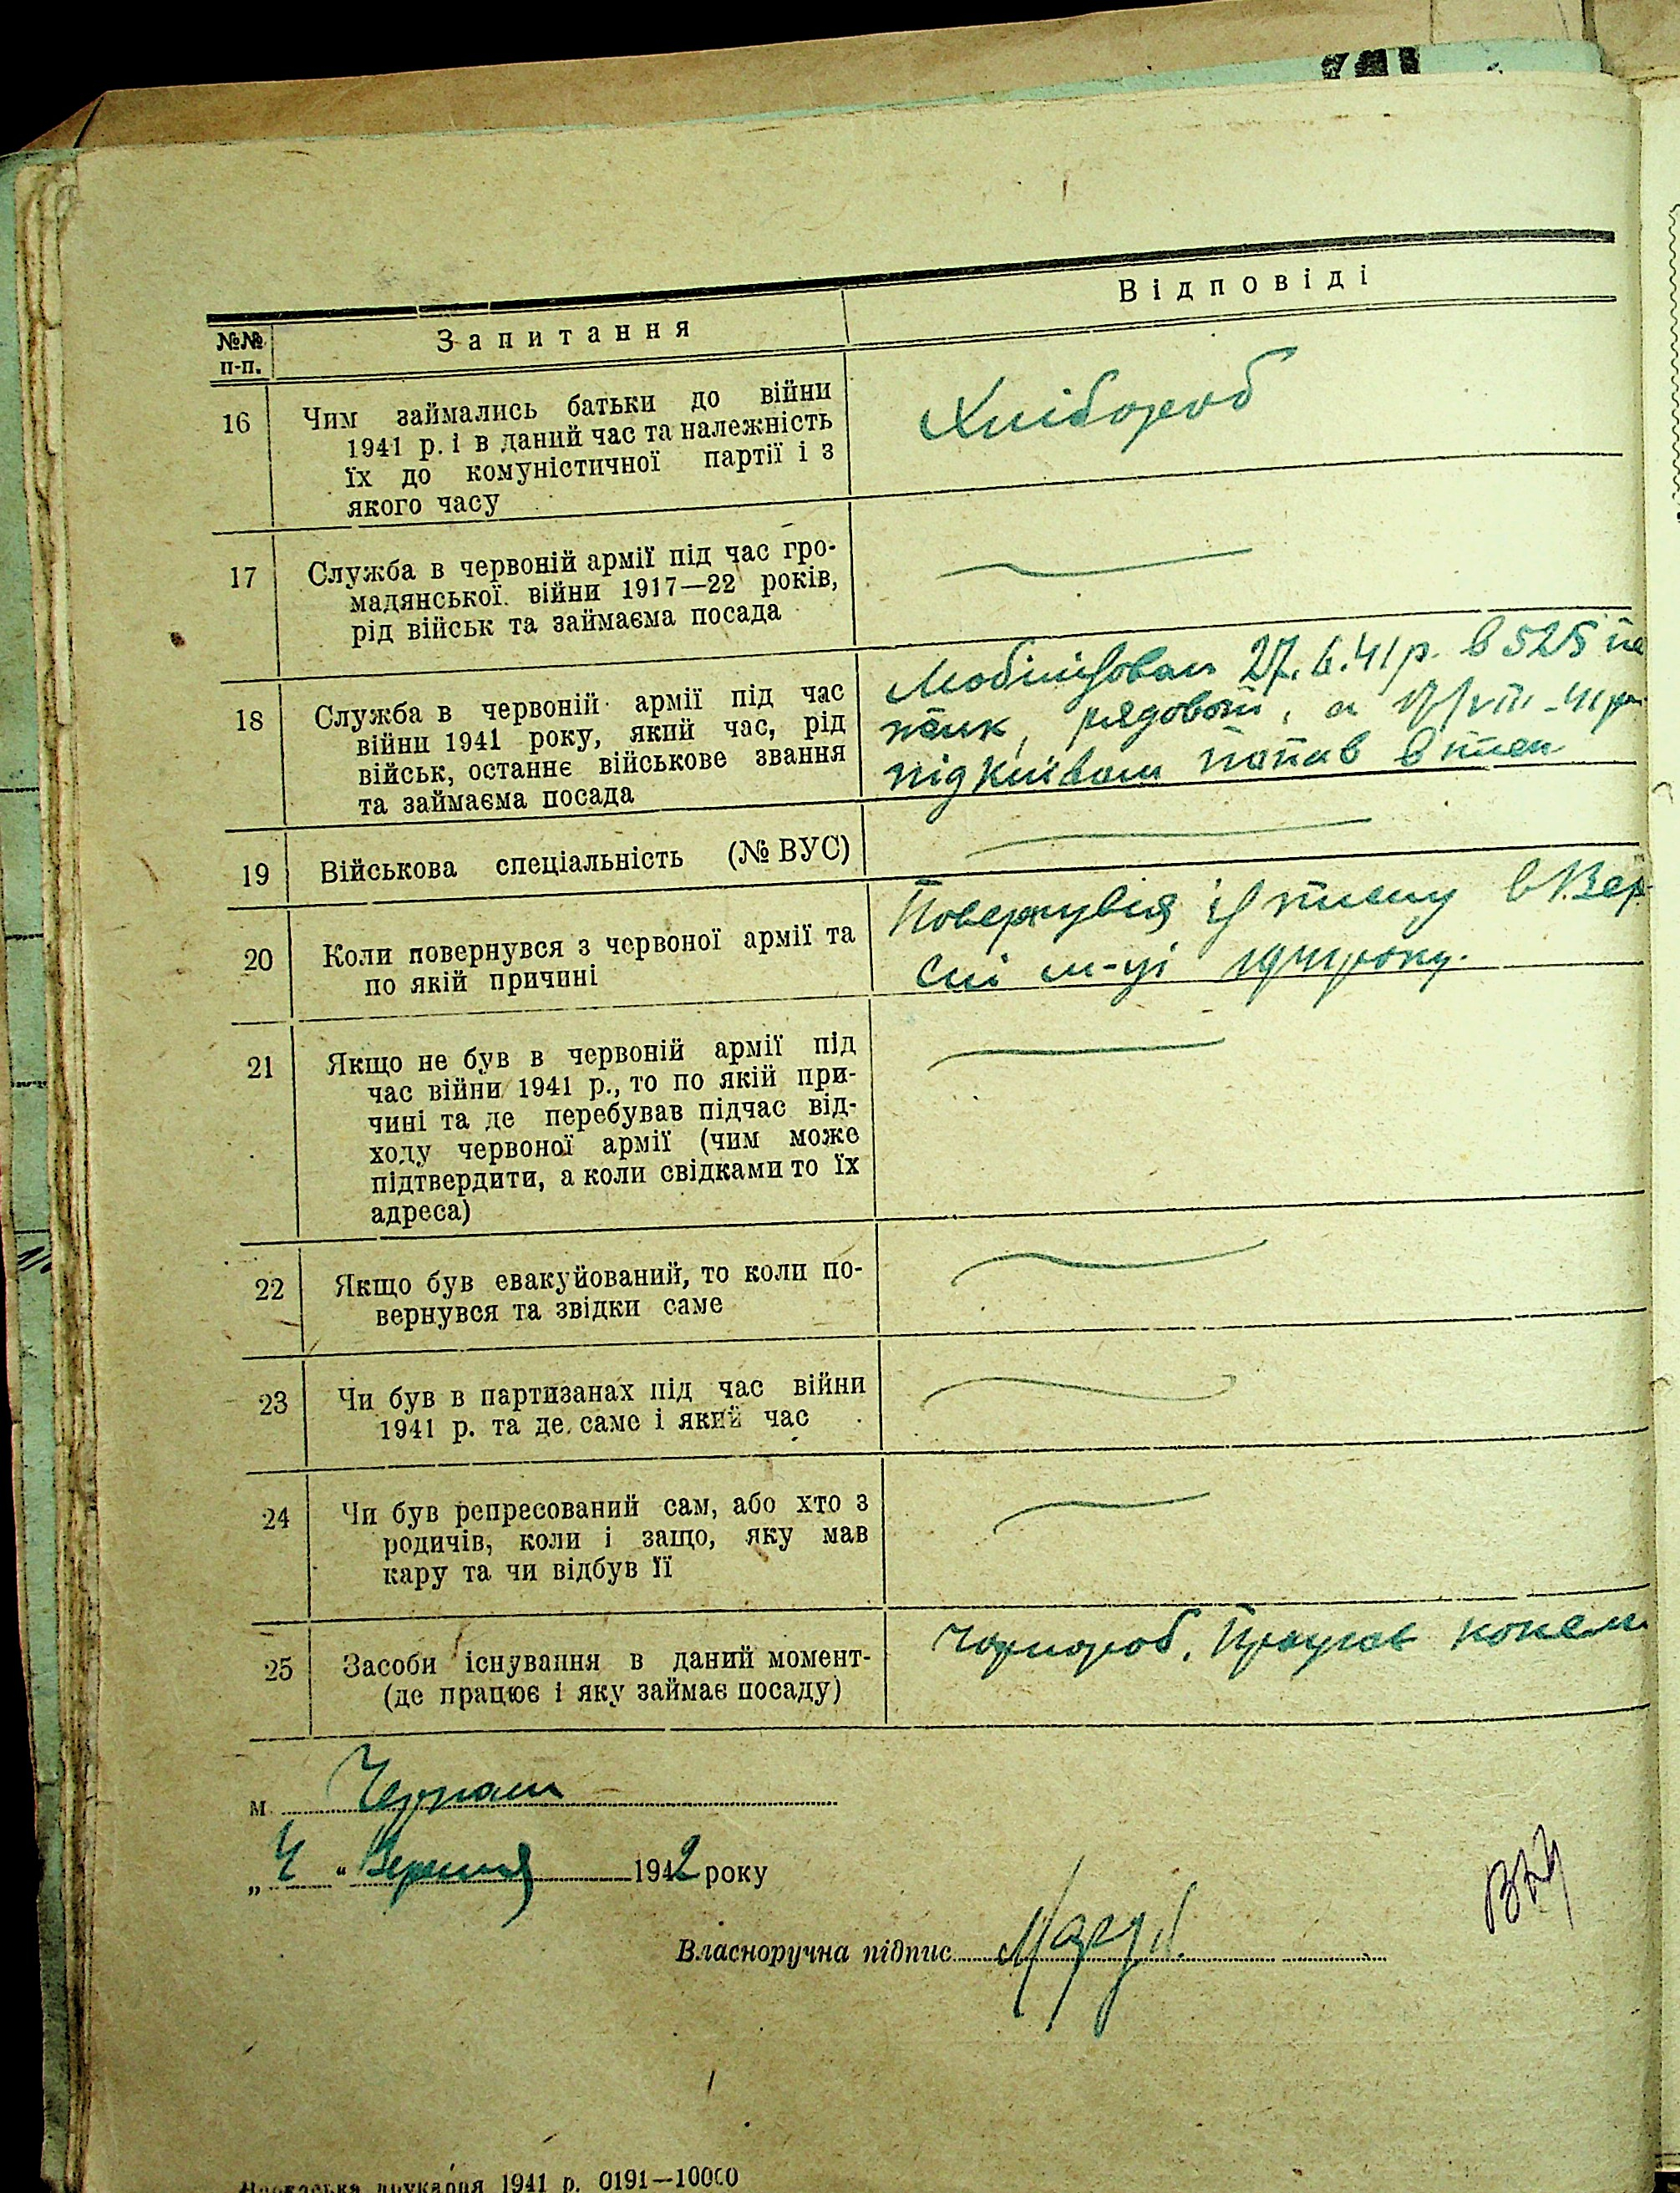 №№ п-п.
Запитання
Відповіді
16
Чим займались батьки до війни
1941 р. і в даний час та належність
їх до комуністичної партії і з
якого часу
Хлібороб
17
Служба в червоній армії під час гро-
мадянської війни 1917—22 років,
рід військ та займаєма посада
18
Служба в червоній армії під час
війни 1941 року, який час, рід
військ, останнє військове звання
та займаєма посада
Мобілізован 27.6.41 р. в 525
полк, рядовой, а /VIII-41 р.
під Київом попав в плен
19
Військова спеціальність (№ ВУС)
20
Коли повернувся з червоної армії та
по якій причині
Повернувся із плену в Вер-
сні м-ці 1941 року.
21
Якщо не був в червоній армії під
час війни 1941 р., то по якій при-
чині та де перебував підчас від-
ходу червоної армії (чим може
підтвердити, а коли свідками то їх
адреса)
22
Якщо був евакуйований, то коли по-
вернувся та звідки саме
23
Чи був в партизанах під час війни
1941 р. та де саме і який час
24
Чи був репресований сам, або хто з
родичів, коли і защо, яку мав
кару та чи відбув її
25
Засоби існування в даний момент-
(де працює і яку займає посаду)
Чорнороб.
м.
„ 4 " Вересня 1942 року
Власноручна підпис
друкарня 1941 р. 0191—10000